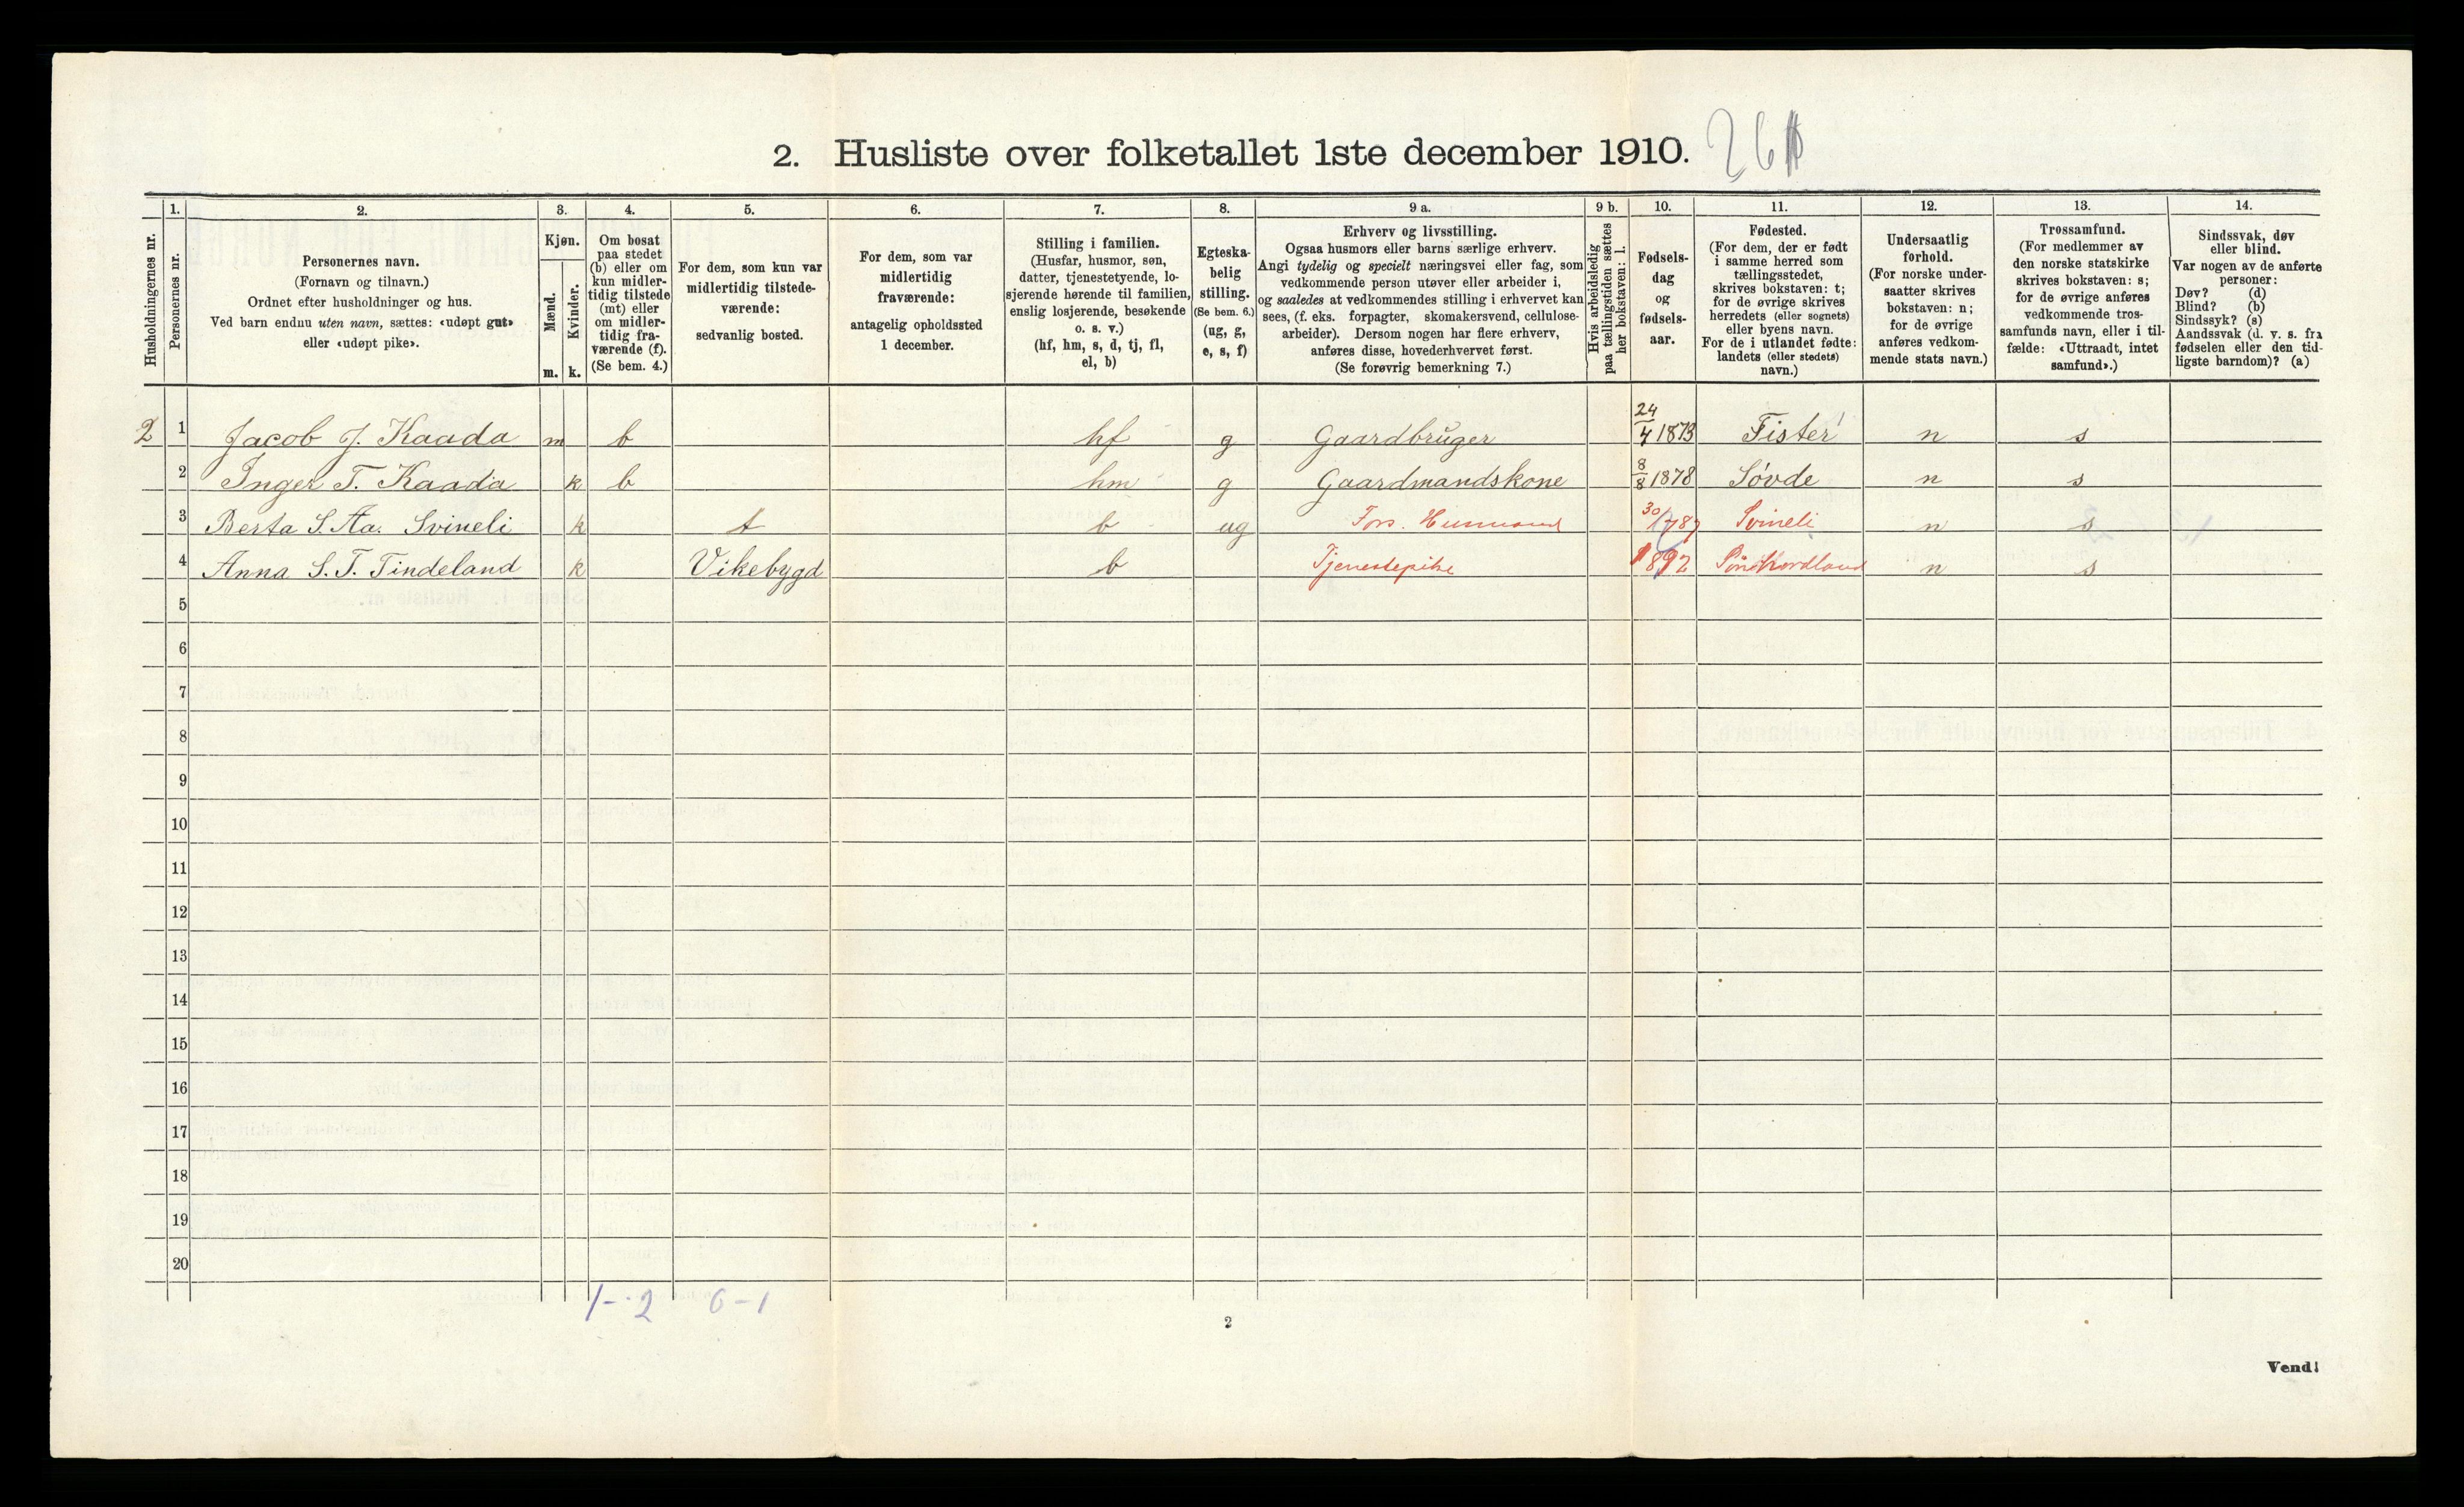 2. Husliste over folketallet 1ste december 1910. 26
Husholdningernes nr.
1. Personernes nr.
2. Personernes navn.
(Fornavn og tilnavn.)
Ordnet efter husholdninger og hus.
Ved barn endnu uten navn, sættes: «udøpt gut»
eller «udøpt pike».
3. Kjøn.
Mænd. Kvinder.
m. k.
4. Om bosat
paa stedet
(b) eller om
kun midler-
tidig tilstede
(mt) eller
om midler-
tidig fra-
værende (f).
(Se bem. 4.)
5. For dem, som kun var
midlertidig tilstede-
værende:
sedvanlig bosted.
6. For dem, som var
midlertidig
fraværende:
antagelig opholdssted
1 december.
7. Stilling i familien.
(Husfar, husmor, søn,
datter, tjenestetyende, lo-
sjerende hørende til familien,
enslig losjerende, besøkende
o. s. v.)
(hf, hm, s, d, tj, fl,
el, b)
8. Egteska-
belig
stilling.
(Se bem. 6.)
(ug, g,
e, s, f)
9 a. Erhverv og livsstilling.
Ogsaa husmors eller barns særlige erhverv.
Angi tydelig og specielt næringsvei eller fag, som
vedkommende person utøver eller arbeider i,
og saaledes at vedkommendes stilling i erhvervet kan
sees, (f. eks. forpagter, skomakersvend, cellulose-
arbeider). Dersom nogen har flere erhverv,
anføres disse, hovederhvervet først.
(Se forøvrig bemerkning 7.)
9 b. Hvis arbeidsledig
paa tællingstiden sættes
her bokstaven: l.
10. Fødsels-
dag
og
fødsels-
aar.
11. Fødested.
(For dem, der er født
i samme herred som
tællingsstedet,
skrives bokstaven: t;
for de øvrige skrives
herredets (eller sognets)
eller byens navn.
For de i utlandet fødte:
landets (eller stedets)
navn.)
12. Undersaatlig
forhold.
(For norske under-
saatter skrives
bokstaven: n;
for de øvrige
anføres vedkom-
mende stats navn.)
13. Trossamfund.
(For medlemmer av
den norske statskirke
skrives bokstaven: s;
for de øvrige anføres
vedkommende tros-
samfunds navn, eller i til-
fælde: «Uttraadt, intet
samfund».)
14. Sindssvak, døv
eller blind.
Var nogen av de anførte
personer:
Døv? (d)
Blind? (b)
Sindssyk? (s)
Aandssvak (d. v. s. fra
fødselen eller den tid-
ligste barndom)? (a)
2 1 Jacob J. Kaada m b hf g Gaardbruger 24/4 1873 Fister n s
2 Inger T. Kaada k b hm g Gaardmandskone 8/8 1878 Søvde n s
3 Berta S. Aa. Svineli k t b ug Fors. Svineli n s
4 Anna S. T. Tindeland k Vikebygd b Tjenestepike 1892 n s
5
6
7
8
9
10
11
12
13
14
15
16
17
18
19
20
1-2 0-1
2
Vend!